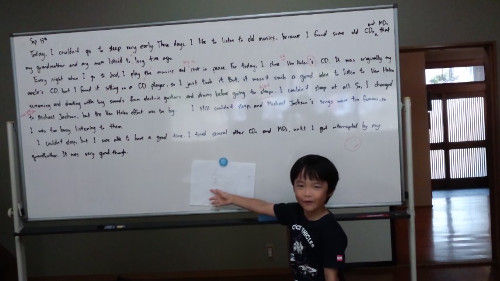 Sep 13th
and MDs
Today, I couldn't go to sleep very early. These days, I like to listen to old musics, because I found some old CDs, that
my grandmother and my mom listened to long time ago.
Every night when I go to bed, I play the musics and rest in peace. For today, I chose Van Halen's CD. It was originally my
uncle's CD, but I found it sitting on a CD player, so I just took it. But, it wasn't such a good idea to listen to Van Halen
screaming and shouting with big sounds from electric guitars and drums before going to sleep. I couldn't sleep at all. So, I changed
to Michael Jackson, but the Van Halen effect was so big I still couldn't sleep, and Michael Jackson's songs were too famous, so
I was too busy listening to them.
I couldn't sleep, but I was able to have a good time. I found several other CDs and MDs, until I got interrupted by my
grandfather. It was very good though.